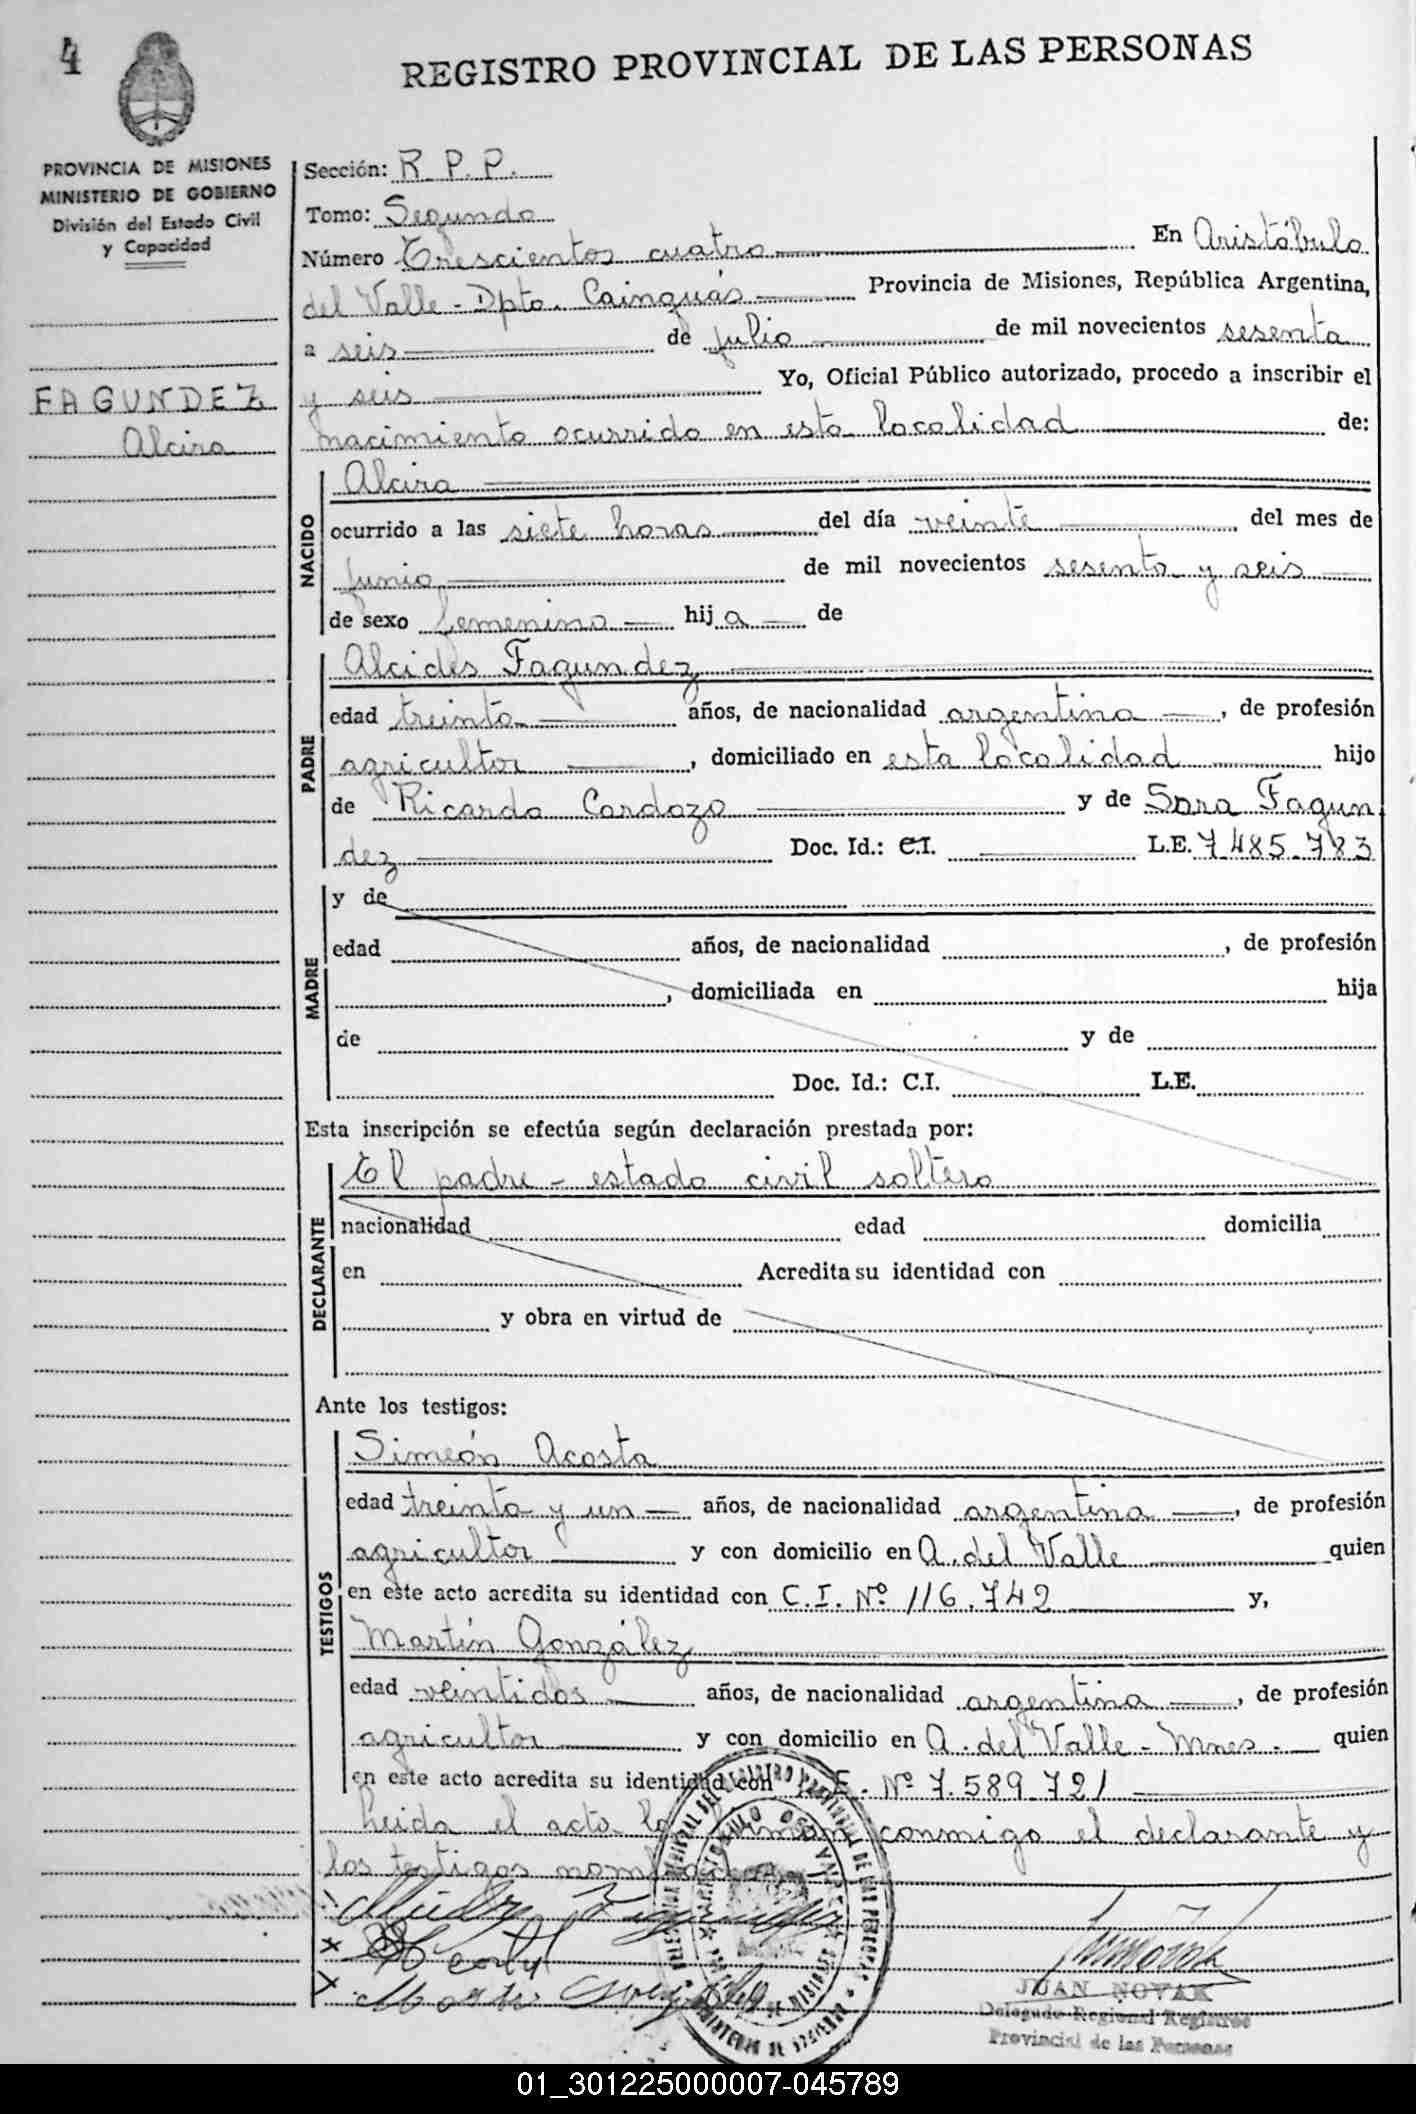 4
REGISTRO PROVINCIAL DE LAS PERSONAS
PROVINCIA DE MISIONES
MINISTERIO DE GOBIERNO
División del Estado Civil
y Capacidad
FAGUNDEZ
Alcira
Sección: R.P.P.
Tomo: Segundo
Número Trescientos cuatro En Aristóbulo
del Valle - Dpto. Cainguás Provincia de Misiones, República Argentina,
a seis de julio de mil novecientos sesenta
y seis Yo, Oficial Público autorizado, procedo a inscribir el
nacimiento ocurrido en esta localidad de:
NACIDO
Alcira
ocurrido a las siete horas del día veinte del mes de
junio de mil novecientos sesenta y seis
de sexo femenino hija de
PADRE
Alcides Fagundez
edad treinta años, de nacionalidad argentina, de profesión
agricultor, domiciliado en esta localidad hijo
de Ricardo Cardozo y de Sara Fagun
dez Doc. Id.: C.I. L.E. 7.485.783
MADRE
y de
edad años, de nacionalidad , de profesión
, domiciliada en hija
de y de
Doc. Id.: C.I. L.E.
Esta inscripción se efectúa según declaración prestada por:
DECLARANTE
El padre - estado civil soltero
nacionalidad edad domicilia
en Acredita su identidad con
y obra en virtud de
Ante los testigos:
TESTIGOS
Simeón Acosta
edad treinta y un años, de nacionalidad argentina, de profesión
agricultor y con domicilio en A. del Valle quien
en este acto acredita su identidad con C.I. Nº 116.742 y,
Martín González
edad veintidos años, de nacionalidad argentina, de profesión
agricultor y con domicilio en A. del Valle - Mnes. quien
en este acto acredita su identidad con E. Nº 7.589.721
Leida el acta la firman conmigo el declarante y
los testigos
JUAN NOVAK
Delegado Regional Registro
Provincial de las Personas
01_301225000007-045789